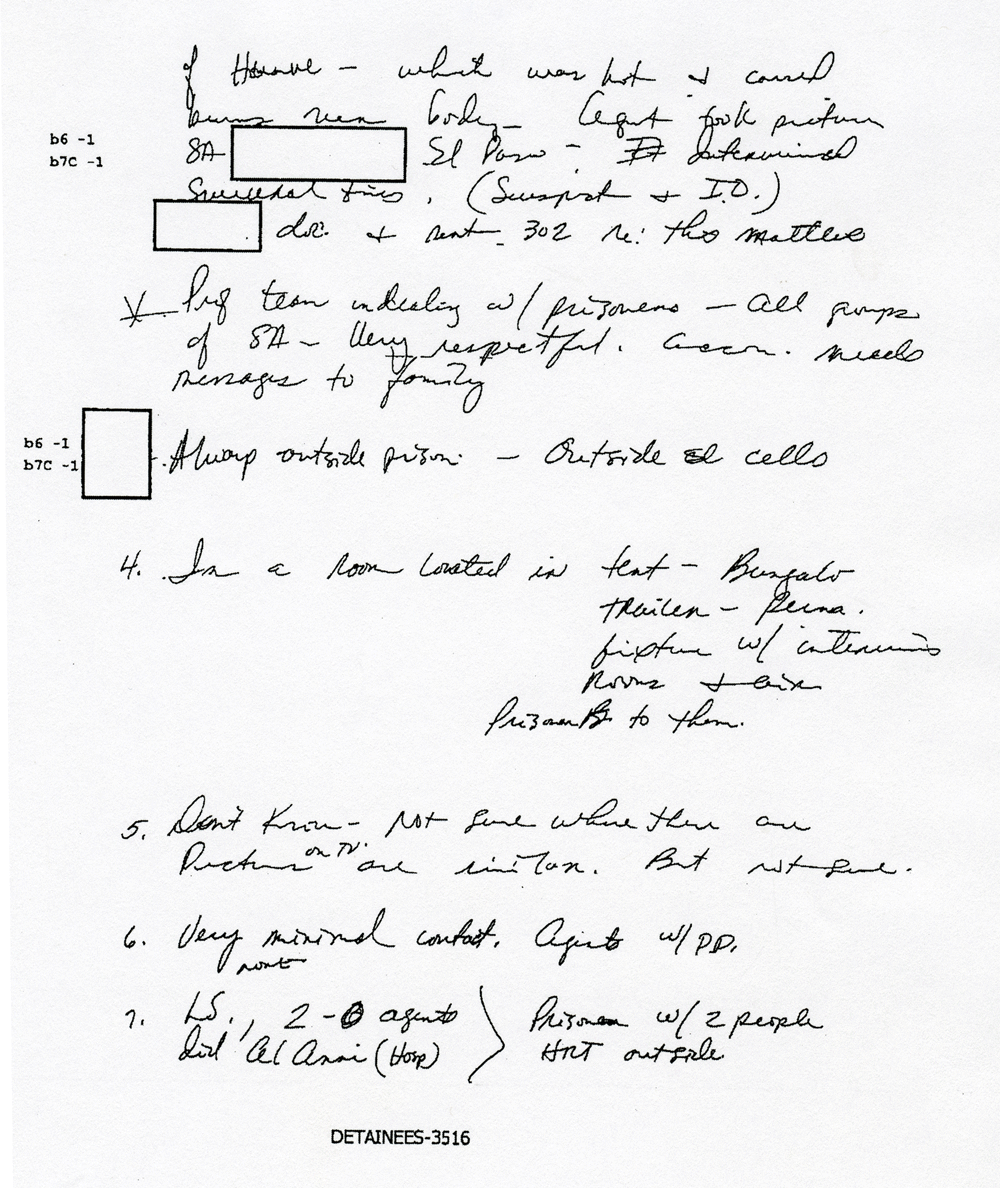 of Humvee - which was hot & caused
burns over body - Agent took picture
b6 -1
b7C -1
SA El Paso - Interviewed
several times. (Suspect & I.D.)
doc. & sent 302 re: the matter
team in dealing w/ prisoners - All groups
of SA - Very respectful. Accom. needs
messages to family
b6 -1
b7C -1
Always outside prison - Outside cells
4. In a room located in tent - Bungalo
Trailer - Perma.
fixture w/
Rooms &
Prisoner to them.
5. Don't Know - Not sure where these are
Pictures on TV. are similar. But not sure.
6. Very minimal contact. Agents w/ PD.
none
7. LS., 2-6 agents Prisoner w/ 2 people
did Al Anni (Hosp) HRT outside
DETAINEES-3516